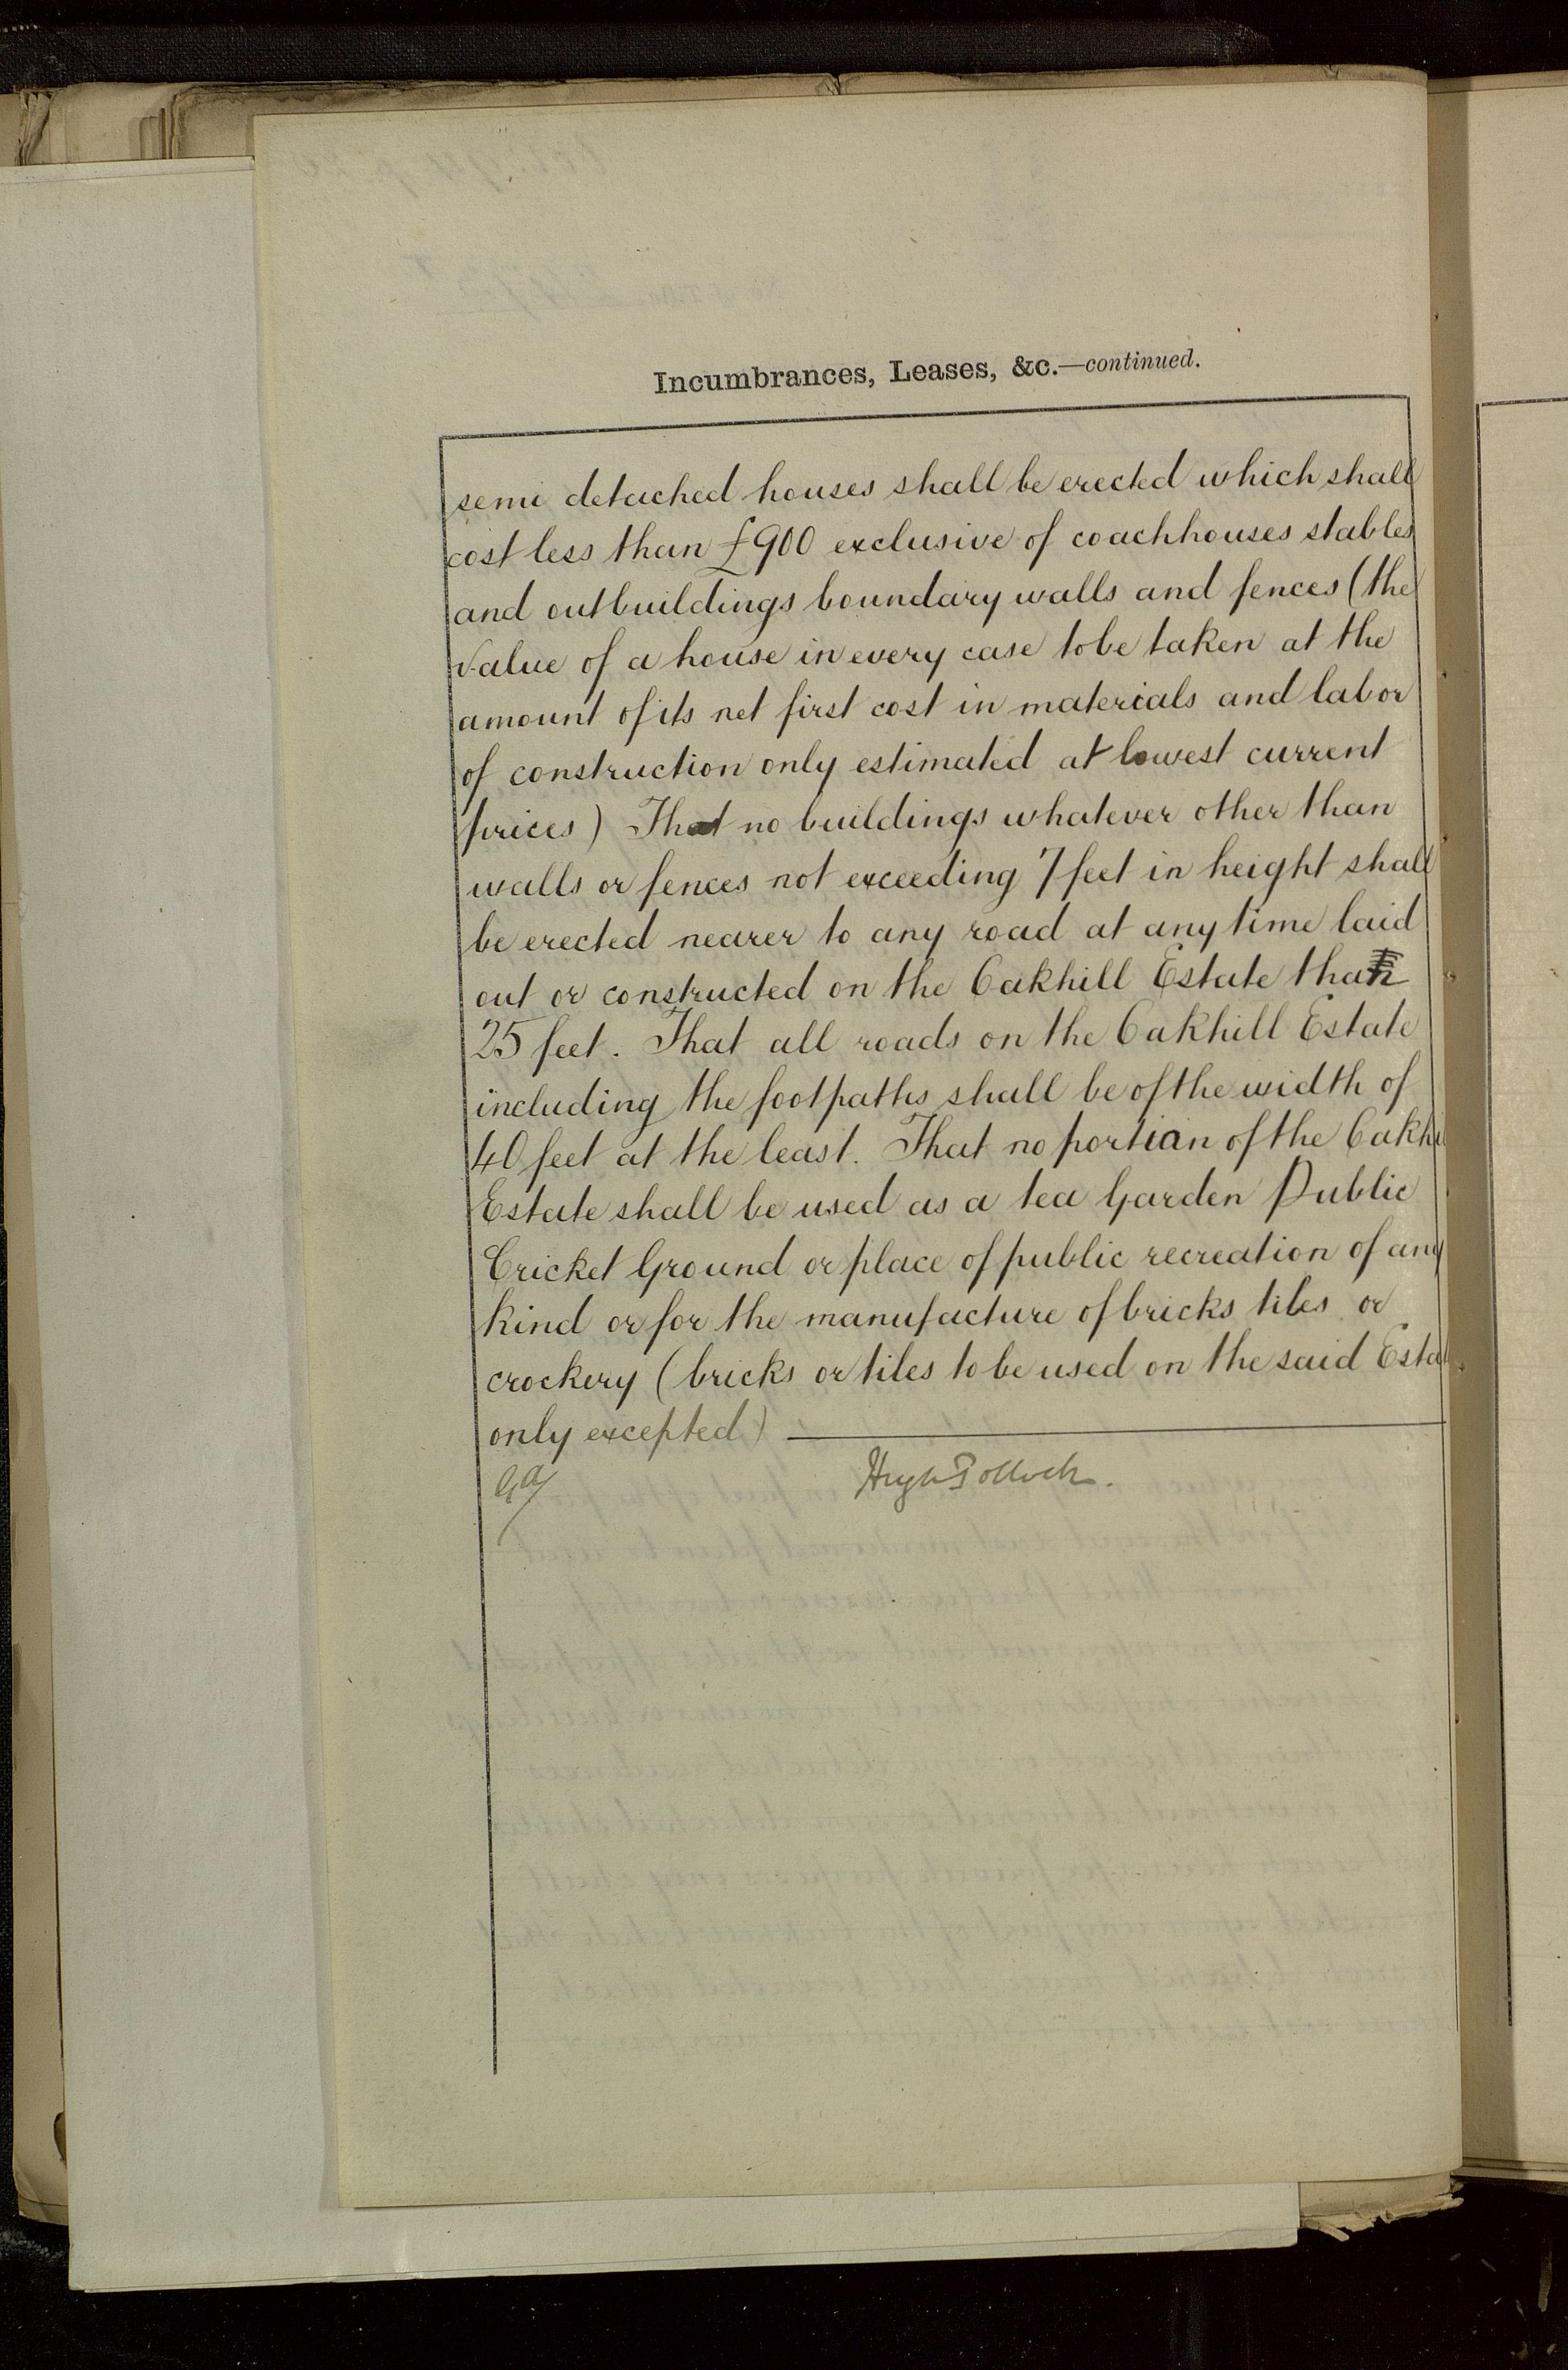 Incumbrances, Leases, &c.—continued.
semi detached houses shall be erected which shall
cost less than £900 exclusive of coachhouses stables
and outbuildings boundary walls and fences (the
value of a house in every case to be taken at the
amount of its net first cost in materials and labor
of construction only estimated at lowest current
prices) That no buildings whatever other than
walls or fences not exceeding 7 feet in height shall
be erected nearer to any road at any time laid
out or constructed on the Oakhill Estate than
25 feet. That all roads on the Oakhill Estate
including the footpaths shall be of the width of
40 feet at the least. That no portian of the Oakhi
Estate shall be used as a tea Garden Public
Cricket Ground or place of public recreation of any
kind or for the manufacture of bricks tiles or
crockery (bricks or tiles to be used on the said Estat
only excepted)
Hugh Pollock.